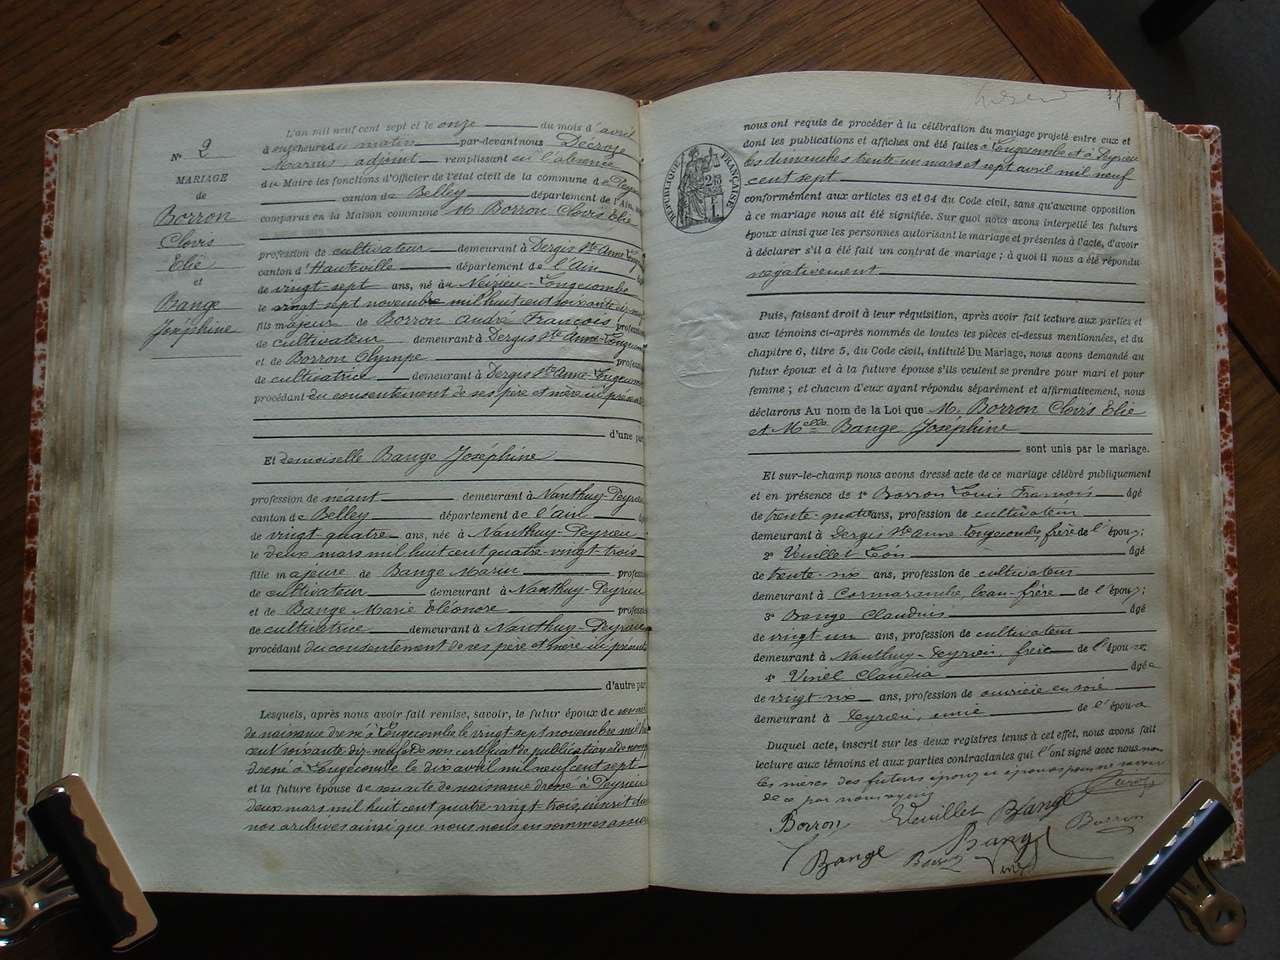 Nº 2
MARIAGE
de
Borron
Clovis
Elie
et
Bange
Joséphine
L'an mil neuf cent sept et le onze du mois d'avril
à heures du matin par-devant nous Décroze
Marius, adjoint remplissant en l'absence
du Maire les fonctions d'Officier de l'état civil de la commune de Peyrieu
canton de Belley département de l'Ain,
comparus en la Maison commune M. Borron Clovis Elie
profession de cultivateur demeurant à Dergis Ste Anne
canton d'Hauteville département de l'Ain
de vingt sept ans, né à Longecombe
le vingt sept novembre mil huit cent soixante dix neuf
fils majeur de Borron André François, profession
de cultivateur demeurant à Dergis Ste Anne-Longecombe
et de Borron Olympe profession
de cultivatrice demeurant à Dergis Ste Anne-Longecombe
procédant du consentement de ses père et mère ici présents
d'une part
Et demoiselle Bange Joséphine
profession de néant demeurant à Nanthuy-Peyrieu
canton de Belley département de l'Ain
de vingt quatre ans, née à Nanthuy-Peyrieu
le deux mars mil huit cent quatre-vingt trois
fille majeure de Bange Marin profession
de cultivateur demeurant à Nanthuy-Peyrieu
et de Bange Marie Eléonore profession
de cultivatrice demeurant à Nanthuy-Peyrieu
procédant du consentement de ses père et mère ici présents
d'autre part
Lesquels, après nous avoir fait remise, savoir, le futur époux de son acte
de naissance dressé à Longecombe le vingt sept novembre mil huit
cent soixante dix-neuf et de son certificat de publication et de non
dressé à Longecombe le dix avril mil neuf cent sept
et la future épouse de son acte de naissance dressé à Peyrieu
deux mars mil huit cent quatre vingt trois, inscrit dans
nos archives ainsi que nous nous en sommes assuré
nous ont requis de procéder à la célébration du mariage projeté entre eux et
dont les publications et affiches ont été faites à Longecombe et à Peyrieu
les dimanches trente un mars et sept avril mil neuf
cent sept
conformément aux articles 63 et 64 du Code civil, sans qu'aucune opposition
à ce mariage nous ait été signifiée. Sur quoi nous avons interpellé les futurs
époux ainsi que les personnes autorisant le mariage et présentes à l'acte, d'avoir
à déclarer s'il a été fait un contrat de mariage ; à quoi il nous a été répondu
négativement
RÉPUBLIQUE FRANÇAISE
Puis, faisant droit à leur réquisition, après avoir fait lecture aux parties et
aux témoins ci-après nommés de toutes les pièces ci-dessus mentionnées, et du
chapitre 6, titre 5, du Code civil, intitulé Du Mariage, nous avons demandé au
futur époux et à la future épouse s'ils veulent se prendre pour mari et pour
femme ; et chacun d'eux ayant répondu séparément et affirmativement, nous
déclarons Au nom de la Loi que M. Borron Clovis Elie
et Melle Bange Joséphine
sont unis par le mariage.
Et sur-le-champ nous avons dressé acte de ce mariage célébré publiquement
et en présence de 1º Borron Louis François âgé
de trente-quatre ans, profession de cultivateur
demeurant à Dergis Ste Anne Longecombe, frère de l'époux ;
2º Veuillet âgé
de trente-six ans, profession de cultivateur
demeurant à Cormaranche, beau-frère de l'époux ;
3º Bange Claudius âgé
de vingt un ans, profession de cultivateur
demeurant à Nanthuy-Peyrieu, frère de l'épouse
4º Vinel Claudia âgée
de vingt-six ans, profession de ouvrière en soie
demeurant à Peyrieu, amie de l'épouse
Duquel acte, inscrit sur les deux registres tenus à cet effet, nous avons fait
lecture aux témoins et aux parties contractantes qui l'ont signé avec nous non
les mères des futurs époux et épouse pour ne savoir
de ce par nous requis
Borron Veuillet Bange
Bange Borron
Bange Vinel